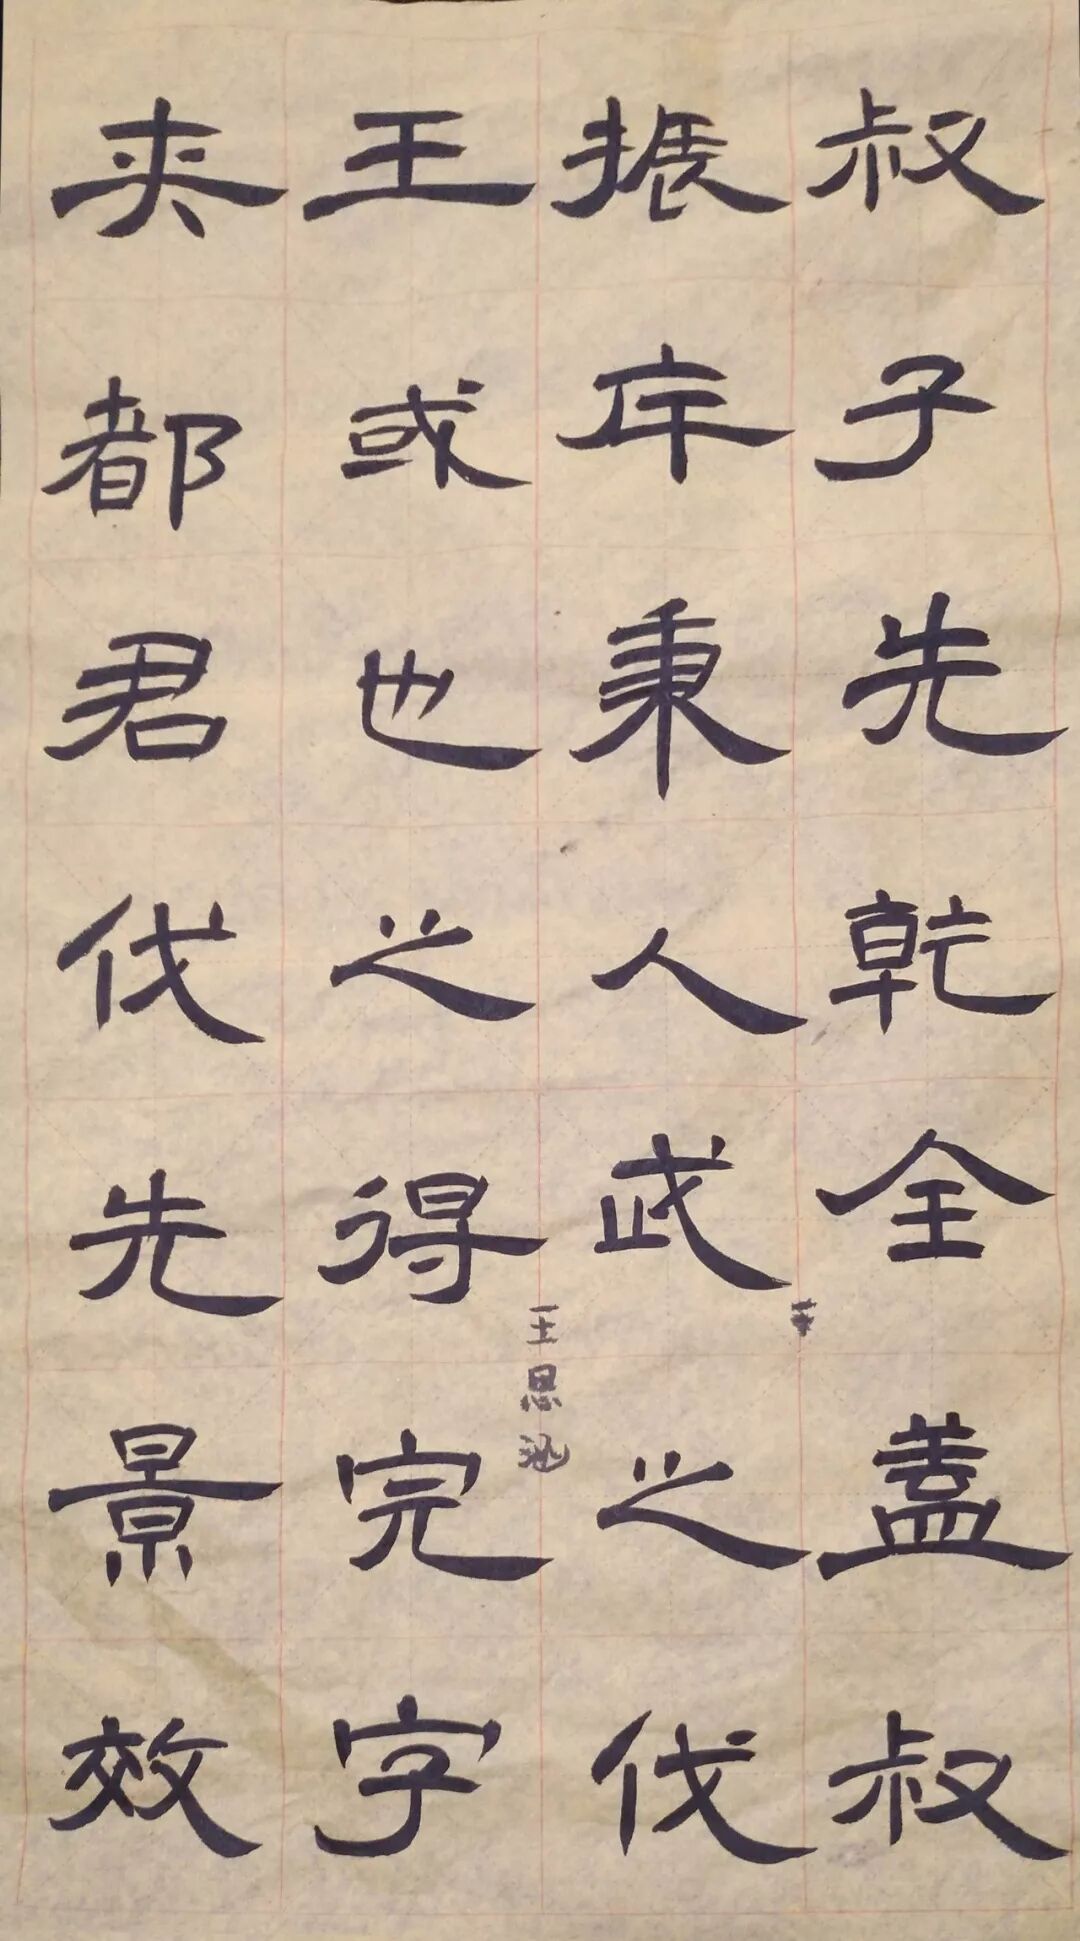 叔子先乾全盖叔
振年秉人武之伐
王或也之得完字
夾都君伐先景效
王思涵